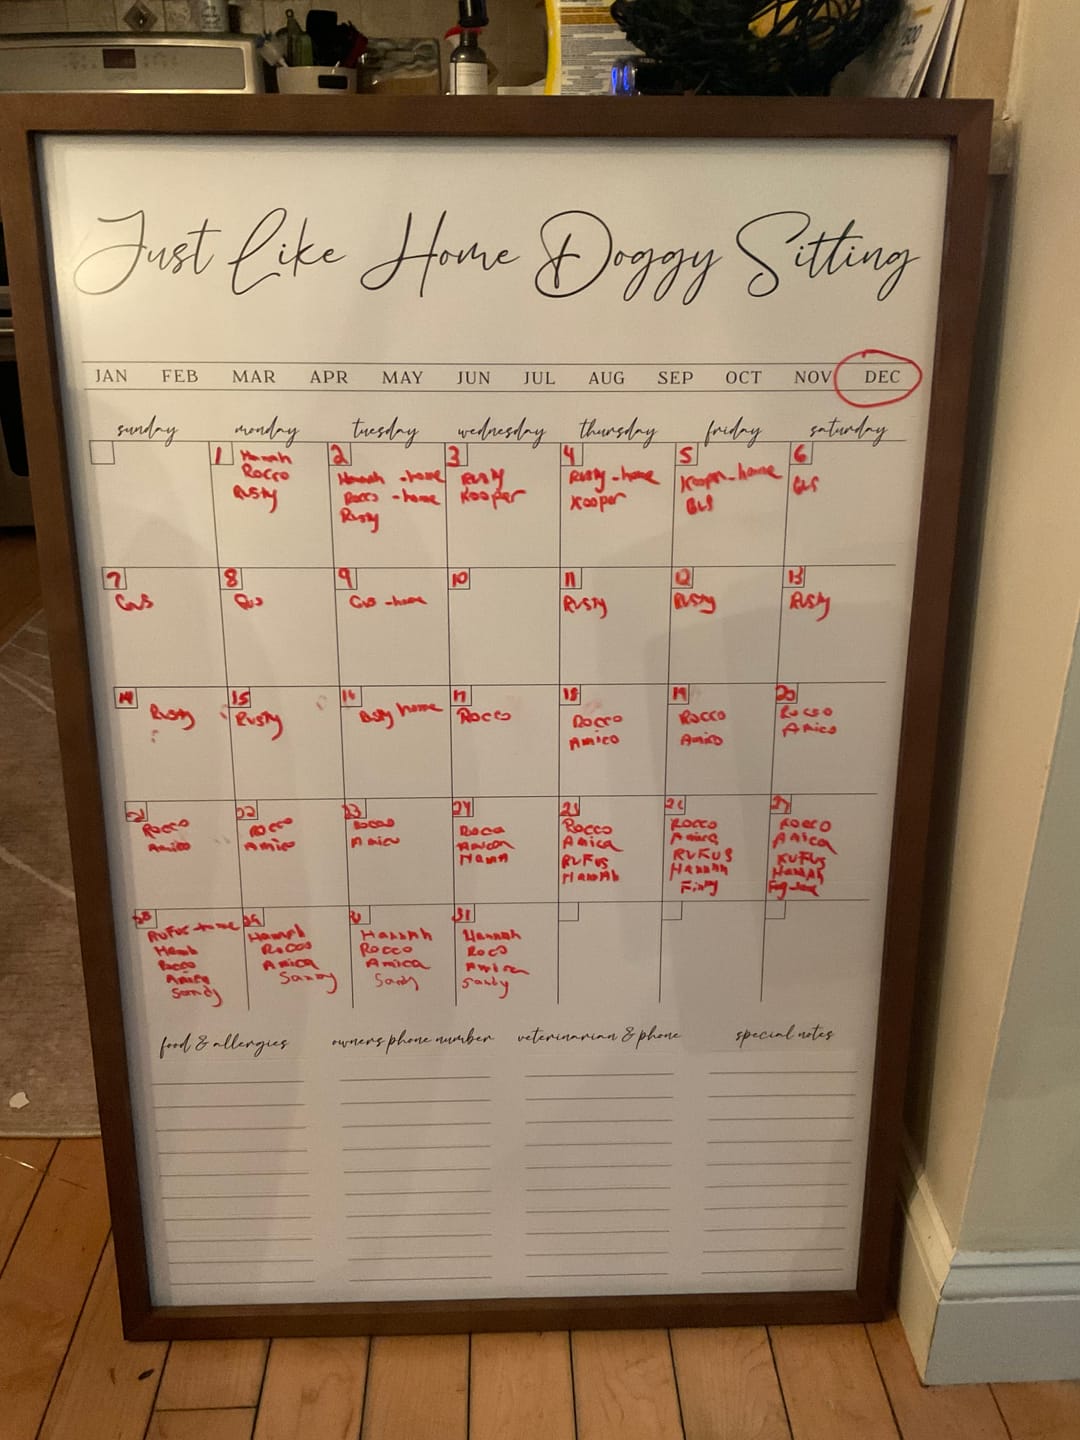 Just Like Home Doggy Sitting
JAN FEB MAR APR MAY JUN JUL AUG SEP OCT NOV DEC
sunday monday tuesday wednesday thursday friday saturday
1
Hannah
Rocco
Rusty
2
Hannah -home
Rocco -home
Rusty
3
Rusty
Kooper
4
Rusty -home
Kooper
5
Kooper -home
Gus
6
Gus
7
Gus
8
Gus
9
Gus -home
10
11
Rusty
12
Rusty
13
Rusty
14
Rusty
15
Rusty
16
Rusty home
17
Rocco
18
Rocco
Amico
19
Rocco
Amico
20
Rocco
Amico
21
Rocco
Amico
22
Rocco
Amico
23
Rocco
Amico
24
Rocco
Hannah
25
Rocco
Amica
RUFUS
HANNAH
26
Rocco
Amica
RUFUS
HANNAH
27
Rocco
Amica
RUFUS
HANNAH
28
RUFUS -home
Hannah
Rocco
Amico
Sandy
29
Hannah
Rocco
Amica
Sandy
Hannah
Rocco
Amica
Sandy
31
Hannah
Roco
Amica
Sandy
food & allergies owners phone number veterinarian & phone special notes